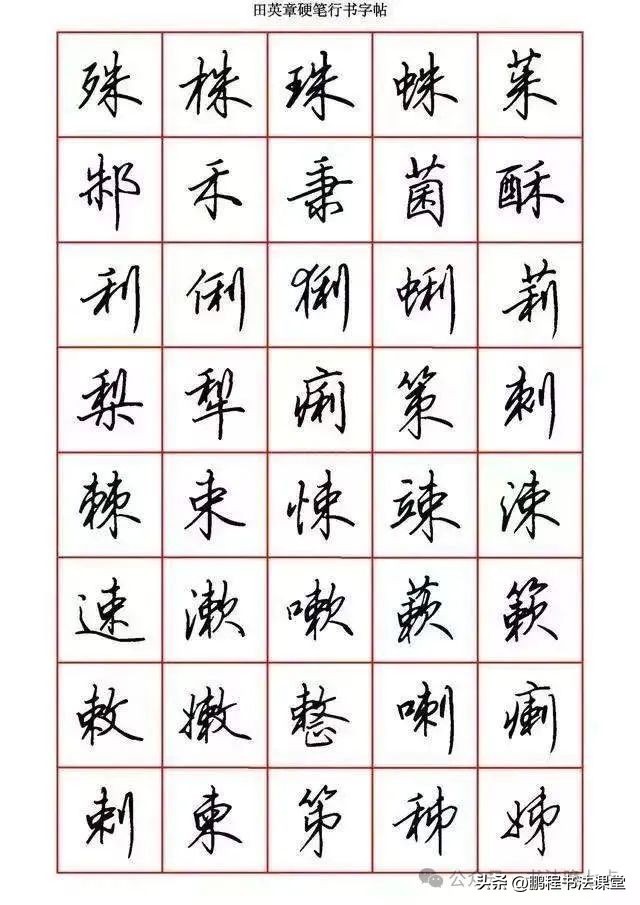 田英章硬笔行书字帖
殊 株 珠 蛛 茱
邾 禾 秉 菌 酥
利 俐 猁 蜊 莉
梨 犁 痢 策 刺
棘 束 悚 竦 涑
速 漱 嗽 蔌 簌
敕 嫩 整 喇 瘌
剌 柬 第 秭 姊
公众号
头条 @鹏程书法课堂